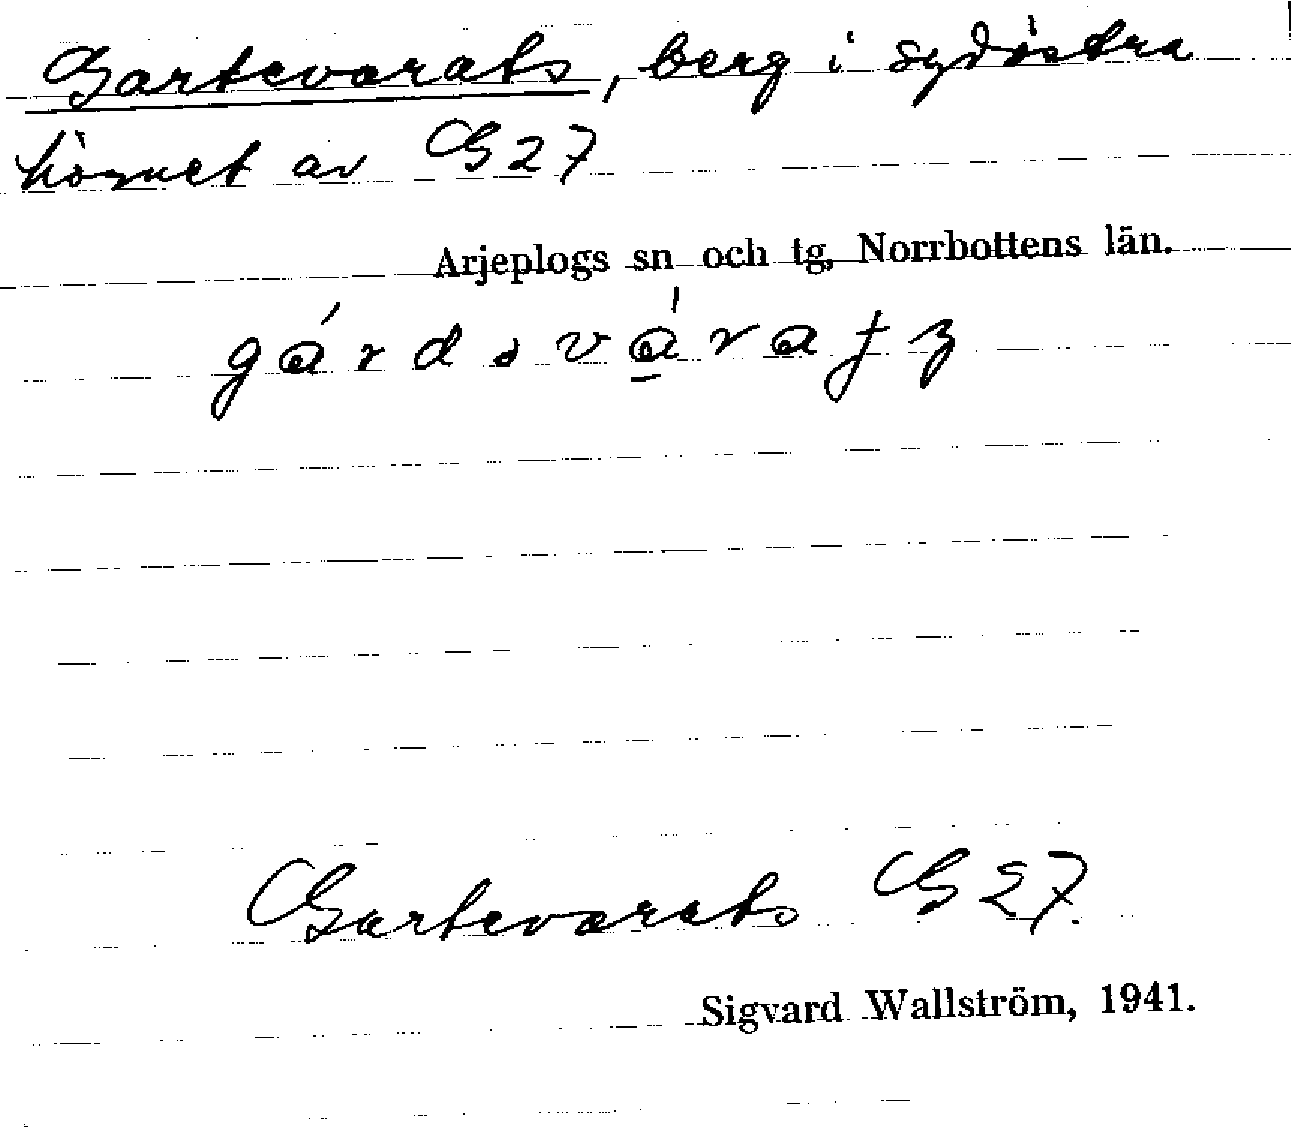 Gartevarats, berg i sydöstra
hörnet av G 27
Arjeplogs sn och tg, Norrbottens län.
Gartevarats G 27.
Sigvard Wallström, 1941.